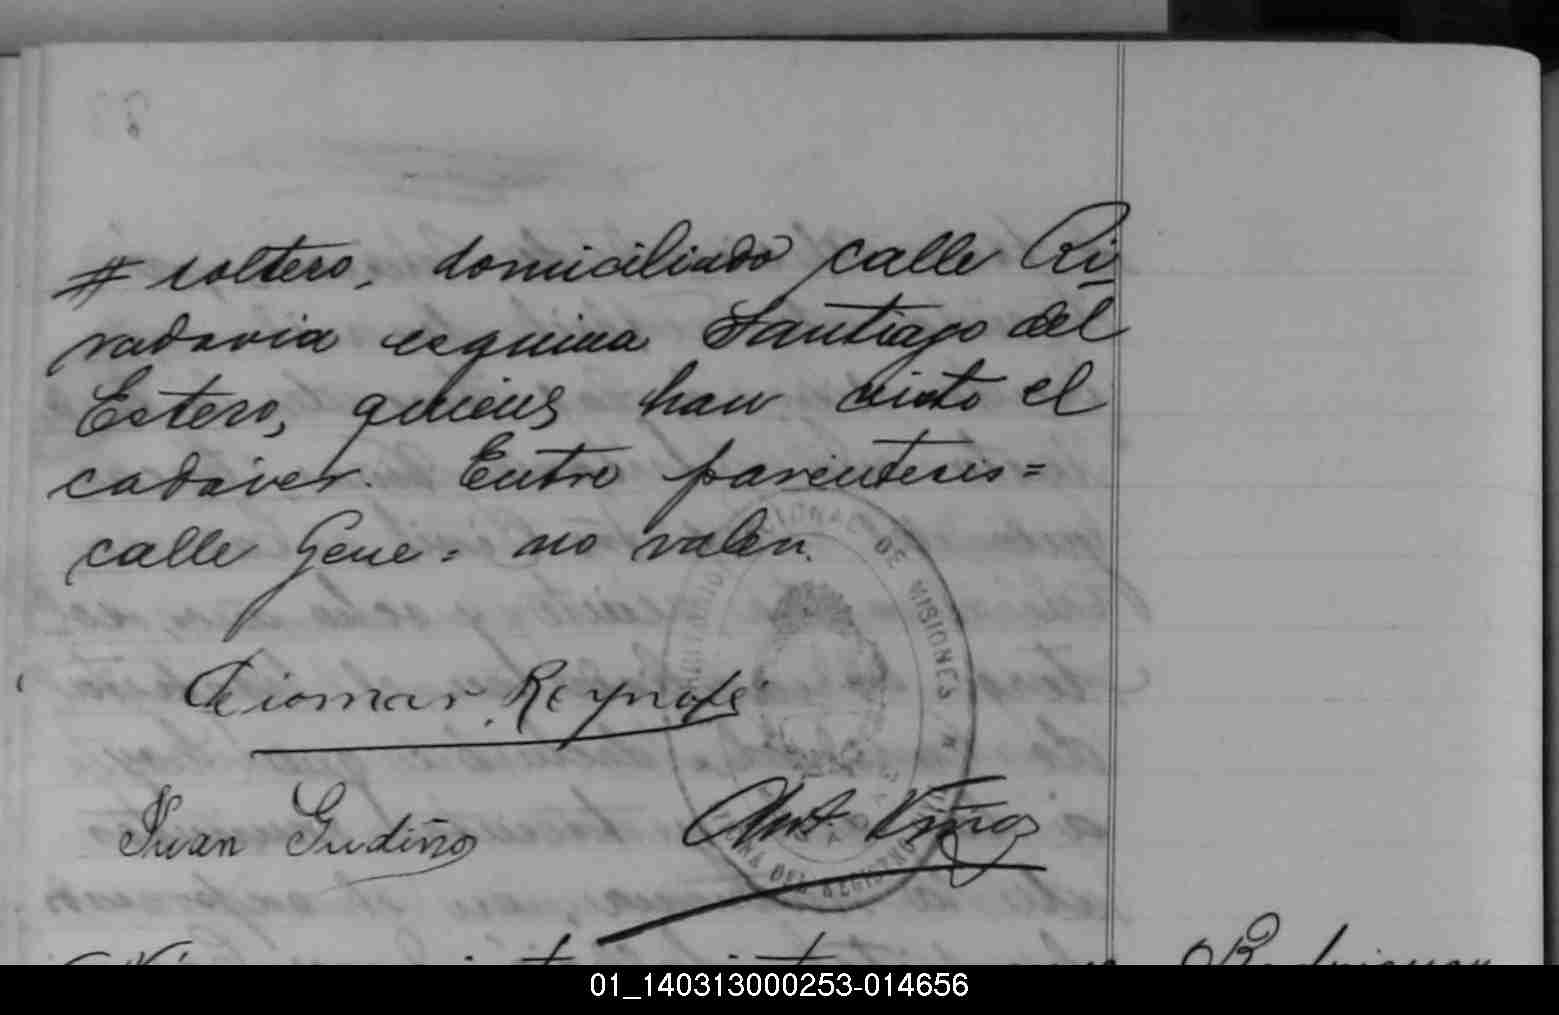 # soltero, domiciliado calle Ri
vadavia esquina Santiago del
Estero, quienes han visto el
cadáver. Entre parentesis=
calle Gene= no valen.
Reynofé
Juan Gudiño
CIONAL DE MISIONES
DEL REGISTRO
Rodriguez
01_140313000253-014656